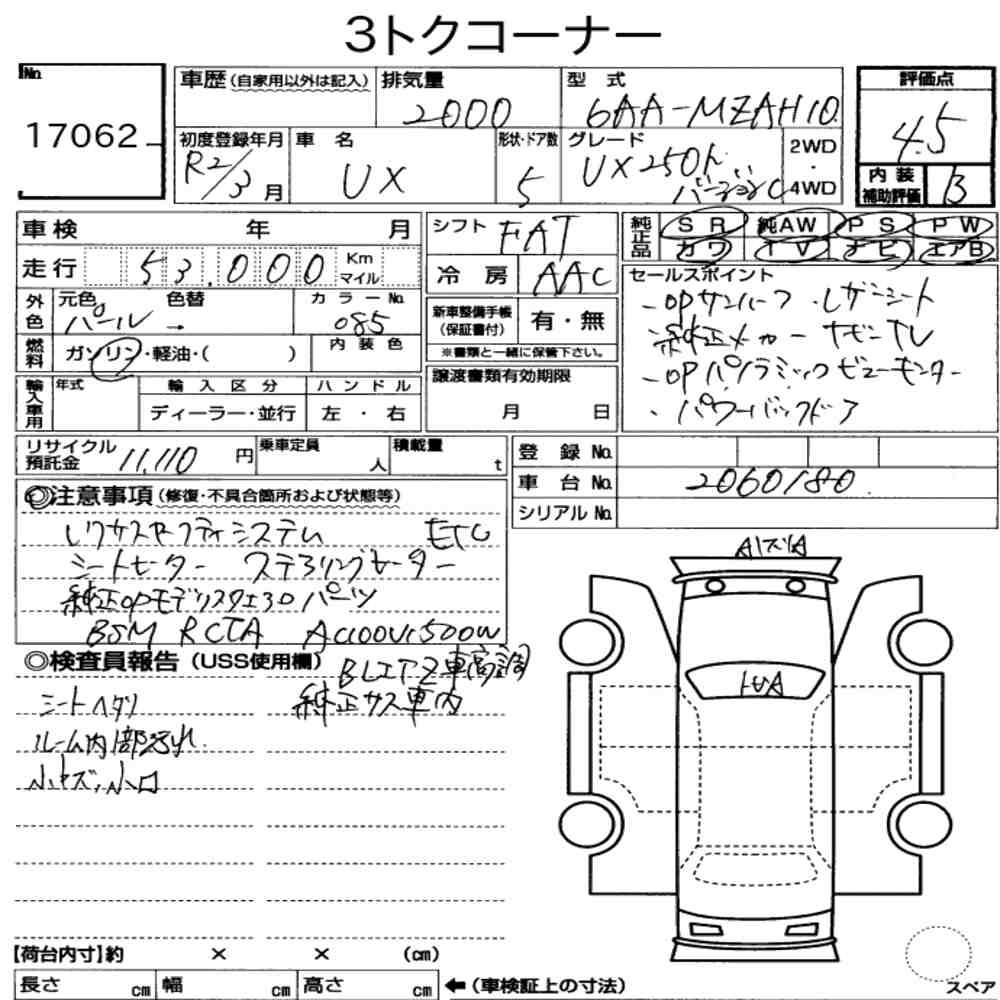 3トクコーナー
No.
17062
車歴（自家用以外は記入） 排気量 2000 型式 6AA-MZAH10
初度登録年月 R2/3月 車名 UX 形状・ドア数 5 グレード UX250h バージョンC 2WD・4WD
評価点 4.5
内装補助評価 B
車検 年 月
走行 53,000 Km マイル
外色 元色 パール 色替 → カラーNo. 085
燃料 ガソリン・軽油・( ) 内装色
輸入車用 年式 輸入区分 ディーラー・並行 ハンドル 左・右
シフト FAT
冷房 AAC
新車整備手帳（保証書付） 有・無
※書類と一緒に保管下さい。
譲渡書類有効期限
月 日
純正品 SR 純AW PS PW
カワ TV ナビ エアB
セールスポイント
-OPサンルーフ ・レザーシート
純正メーカーナビTV
-OPパノラミックビューモニター
・パワーバックドア
リサイクル預託金 11,110円 乗車定員 人 積載量 t
登録No.
車台No. 2060180
シリアルNo.
◎注意事項（修復・不具合箇所および状態等）
レクサスセーフティシステム ETC
シートヒーター ステアリングヒーター
純正OPモデリスタエアロパーツ
BSM RCTA AC100V1500W
BLITZ車高調
純正サス車内
◎検査員報告（USS使用欄）
シートヘタリ
ルーム内部汚れ
小キズ、小凹
A1ズレA
【荷台内寸】約 × × (cm)
長さ cm 幅 cm 高さ cm ←（車検証上の寸法）
スペア